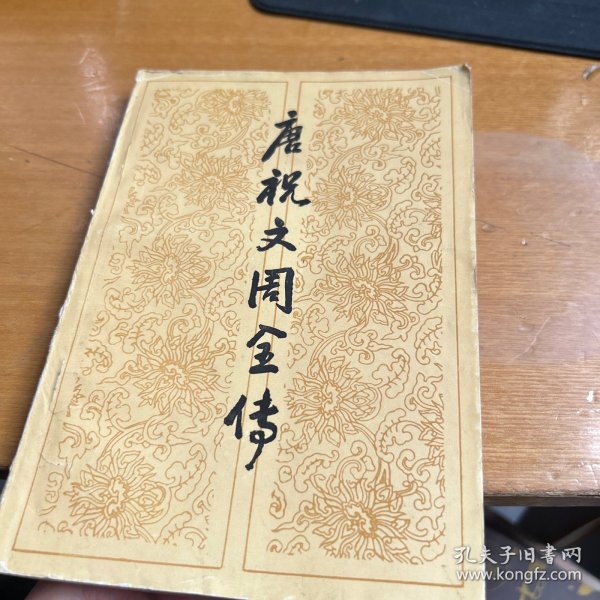 唐祝文周全传
孔夫子旧書网
www.kongfz.com